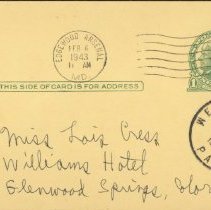 EDGEWOOD ARSENAL
FEB 6
1943
AM
MD.
THIS SIDE OF CARD IS FOR ADDRESS
1
Miss Lois Cress
Williams Hotel
Glenwood Springs, Colo
WE
PA